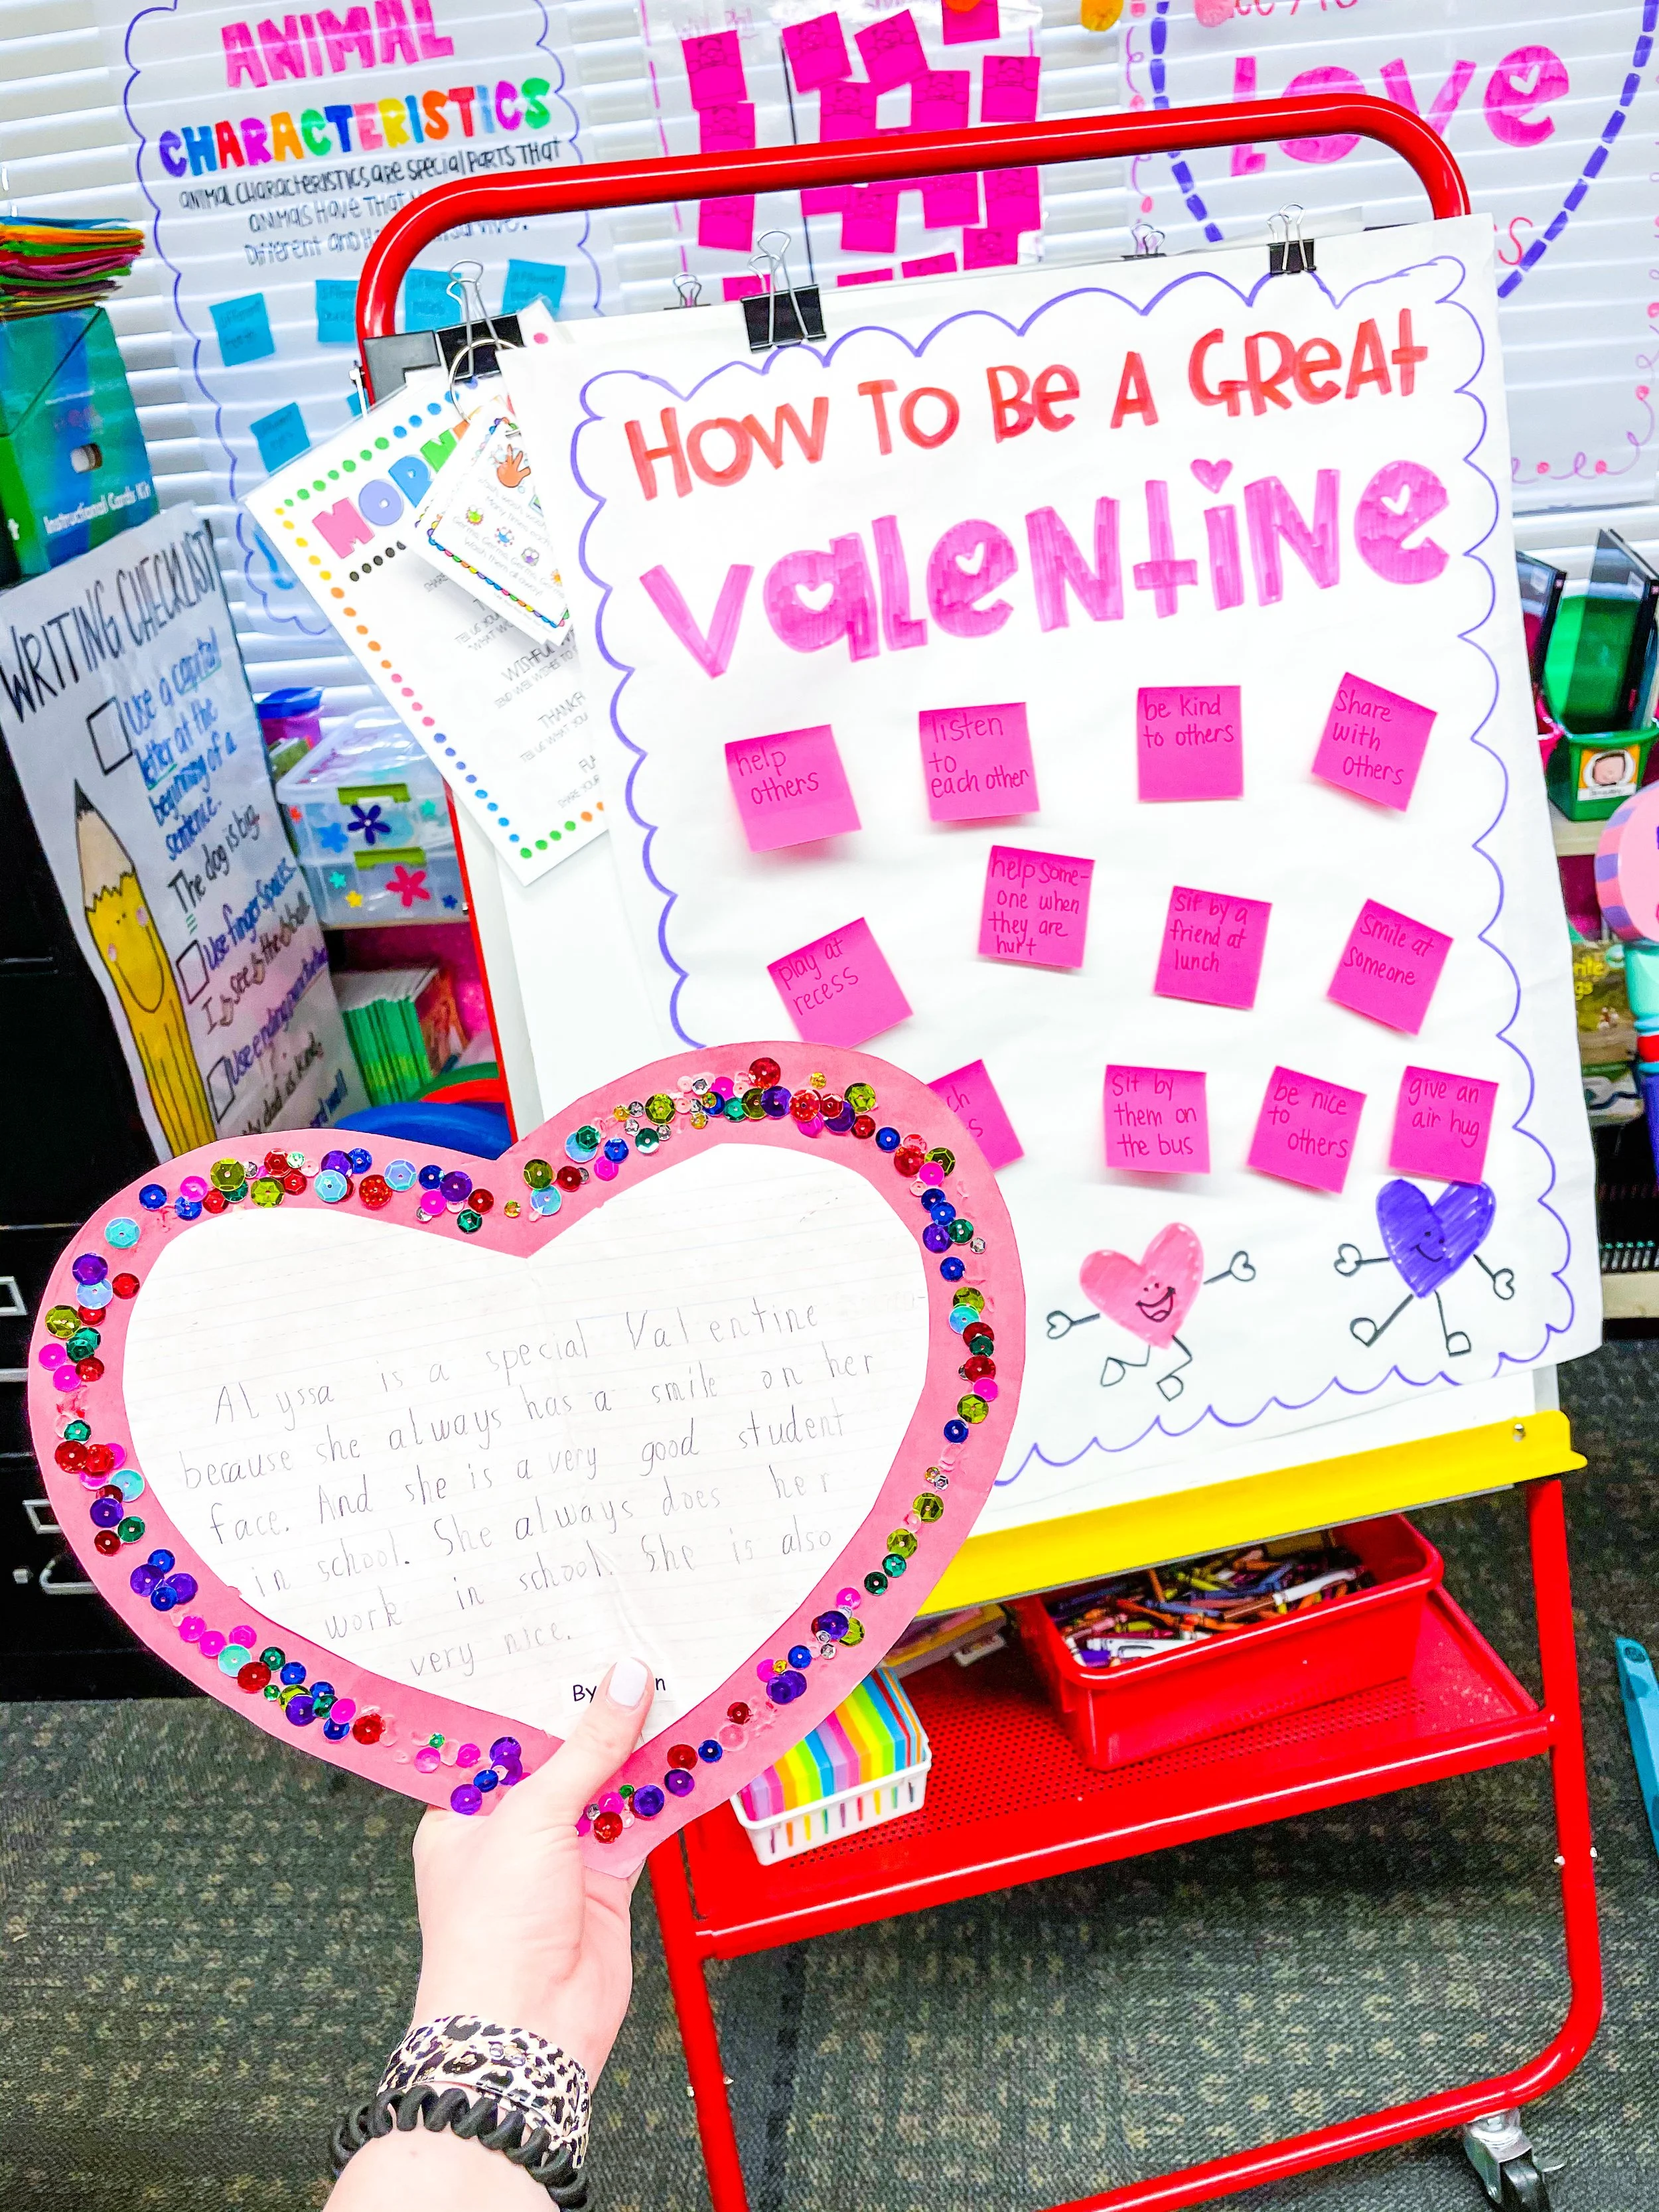 ANIMAL
CHARACTERISTICS
ANIMAL CHARACTERISTICS are special parts that
animals have that
Different and
Love
Instructional Cards Kit
WRITING CHECKLIST
Use a capital
letter at the
beginning of a
sentence.
The dog is big.
Use finger spaces.
I see the ball
Use ending
HOW TO BE A GREAT
VALENTINE
help
others
listen
to
each other
be kind
to others
Share
with
others
play at
recess
help some-
one when
they are
hurt
sit by a
friend at
lunch
smile at
someone
sit by
them on
the bus
be nice
to
others
give an
air hug
ALyssa is a special Valentine
because she always has a smile on her
face. And she is a very good student
in school. She always does her
work in school. She is also
very nice.
By